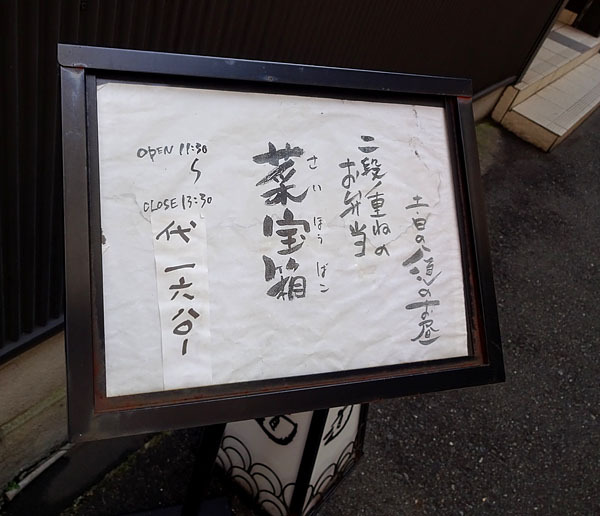 土・日の のお昼
二段重ねの
お弁当
さいほうばこ
菜宝箱
OPEN 11:30
〜
CLOSE 13:30
代 一六八〇ー